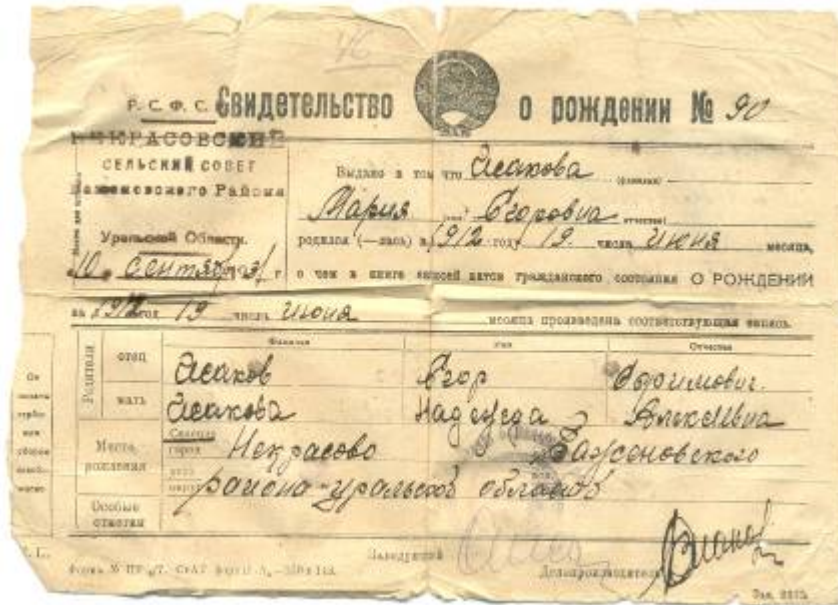 46
Р. С. Ф. С. Свидетельство о рождении № 90
НЕКРАСОВСКИЙ
СЕЛЬСКИЙ СОВЕТ
Баженовского Района
Уральской Области.
Выдано в том что Исакова (фамилия)
Мария Егоровна отчество
родился (—лась) в 1912 году 19 числа Июня месяца,
10 Сентяб 31 г. о чем в книге записей актов гражданского состояния О РОЖДЕНИИ
за 1912 год 19 числа Июня месяца произведена соответствующая запись.
Родители
Фамилия Имя Отчество
отец Исаков Егор Ефимович.
мать Исакова Надежда Алексеевна
Место рождения
Селение город Некрасово Баженовского
района Уральской области
Особые отметки
Заведующий
Делопроизводитель